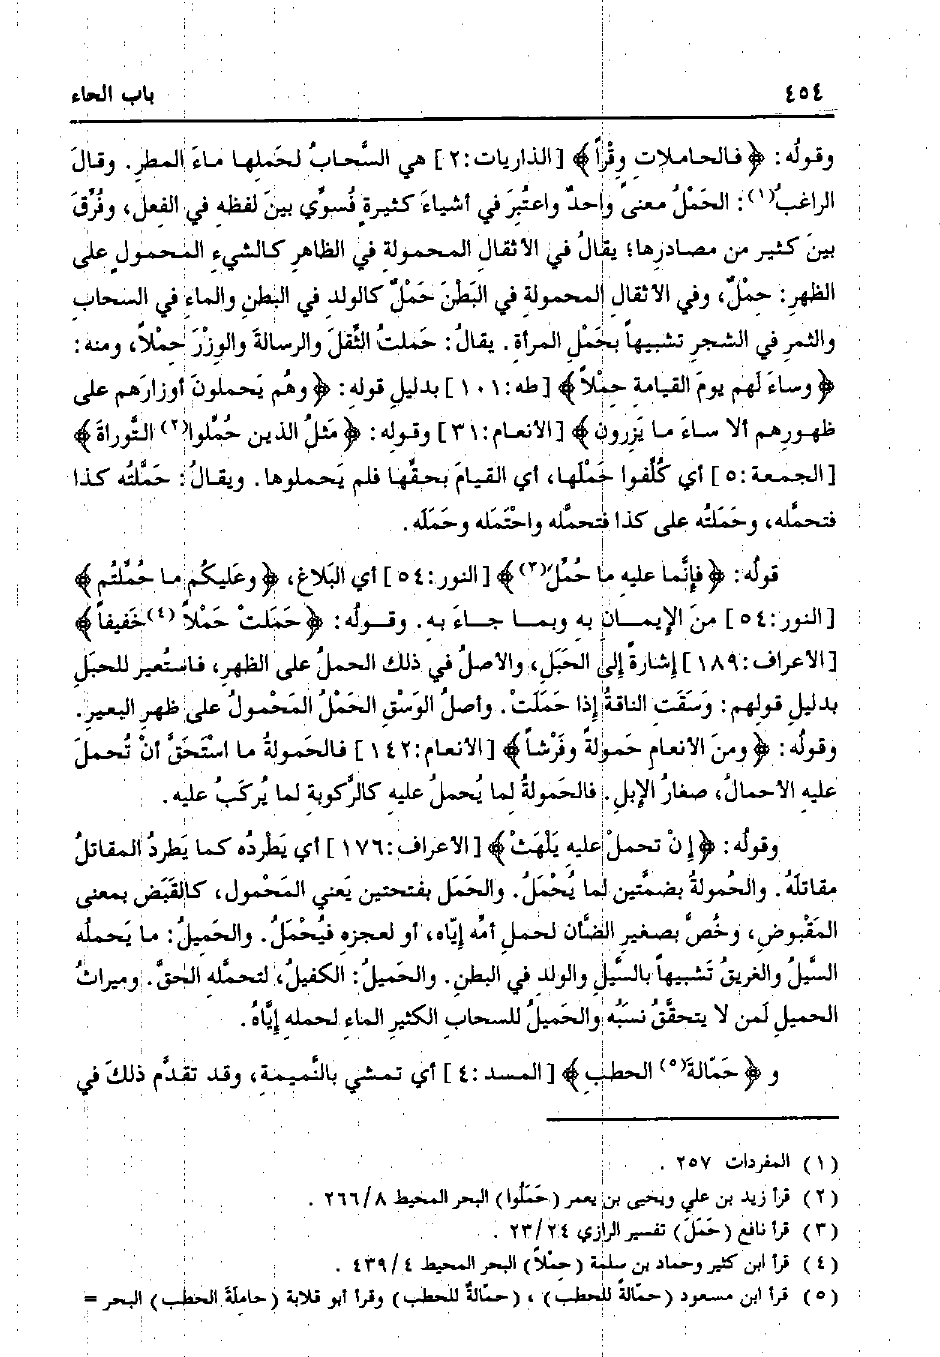 ٤٥٤ باب الحاء
وقولُه: ﴿ فالحاملاتِ وِقْراً ﴾ [الذاريات: ٢] هي السَّحابُ لحَملِها ماءَ المطرِ. وقالَ
الراغبُ(١): الحَمْلُ معنىً واحدٌ واعتُبِرَ في أشياءَ كثيرةٍ فُسوِّيَ بينَ لفظهِ في الفعلِ، وفُرِّقَ
بينَ كثيرٍ من مصادرِها؛ يقالُ في الأثقالِ المحمولة في الظاهرِ كالشيءِ المحمولِ على
الظهرِ: حِمْلٌ، وفي الأثقالِ المحمولة في البَطْنَ حَمْلٌ كالولد في البطنِ والماءِ في السحابِ
والثمرِ في الشجرِ تشبيهاً بحَمْلِ المرأةِ. يقالُ: حَملتُ الثِّقلَ والرسالةَ والوِزْرَ حِمْلاً، ومنه:
﴿ وساءَ لَهم يومَ القيامة حِمْلاً ﴾ [طه: ١٠١] بدليلِ قوله: ﴿ وهُم يَحملونَ أوزارَهم على
ظهورِهم ألا ساءَ ما يَزِرون ﴾ [الأنعام: ٣١] وقوله: ﴿ مَثلُ الذين حُمِّلوا(٢) التَّوراةَ ﴾
[الجمعة: ٥] أي كُلِّفوا حَمْلَها، أي القيامَ بحقِّها فلم يَحملوها. ويقالُ: حَمَّلتُه كذا
فتحمَّله، وحَمَلتُه على كذا فتحمَّله واحْتَمَله وحَمَلَه.
قولُه: ﴿ فإنَّما عليهِ ما حُمِّلَ(٣) ﴾ [النور: ٥٤] أي البَلاغ، ﴿ وعَليكُم ما حُمِّلتُم ﴾
[النور: ٥٤] منَ الإيمـــانِ بهِ وبمـا جـاءَ به. وقـولُه: ﴿ حَمَلتْ حَمْلاً (٤) خَفيفاً ﴾
[الأعراف: ١٨٩] إشارةٌ إلى الحَبَلِ، والأصلُ في ذلك الحملُ على الظهرِ، فاستُعير للحبَلِ
بدليلِ قولهم: وَسَقَت الناقةُ إذا حَمَلَتْ. وأصلُ الوَسْقِ الحَمْلُ المَحْمولُ على ظهرِ البعيرِ.
وقولُه: ﴿ ومنَ الأنعامِ حَمولةً وفَرْشاً ﴾ [الأنعام: ١٤٢] فالحَمولةُ ما اسْتَحَقَّ أنْ تُحملَ
عليهِ الأحمالُ، صغارُ الإبلِ. فالحَمولةُ لما يُحملُ عليه كالرَّكوبة لما يُركَبُ عليه.
وقولُه: ﴿ إنْ تحملْ عليهِ يَلْهَثْ ﴾ [الأعراف: ١٧٦] أي يَطْردُه كما يَطردُ المقاتلُ
مقاتلَهُ. والحُمولةُ بضمَّتين لما يُحْمَلُ. والحَمَل بفتحتين يَعني المَحْمول، كالقَبَضِ بمعنى
المَقْبوضِ، وخُصَّ بصغيرِ الضَّأن لحملِ أمِّه إيّاه، أو لعجزِه فيُحْمَلُ. والحَميلُ: ما يَحمله
السَّيلُ والغريقُ تَشبيهاً بالسَّيلِ والولد في البطن. والحَميلُ: الكفيلُ، لتحمُّله الحقَّ. وميراثُ
الحميلِ لَمن لا يتحقَّقُ نسَبُه والحَميلُ للسحاب الكثيرِ الماءِ لحمله إيَّاهُ.
و ﴿ حَمّالةَ(٥) الحطبِ ﴾ [المسد: ٤] أي تمشي بالنَّميمة، وقد تقدَّم ذلكَ في
(١) المفردات ٢٥٧ .
(٢) قرأ زيد بن علي ويحيى بن يعمر (حَمَلُوا) البحر المحيط ٢٦٦/٨ .
(٣) قرأ نافع (حَمَلَ) تفسير الرازي ٢٣/٢٤ .
(٤) قرأ ابن كثير وحماد بن سلمة (حِمْلاً) البحر المحيط ٤٣٩/٤ .
(٥) قرأ ابن مسعود (حمّالةً للحطب) ، (حمّالةٌ للحطب) وقرأ أبو قلابة (حاملَةَ الحطب) البحر =